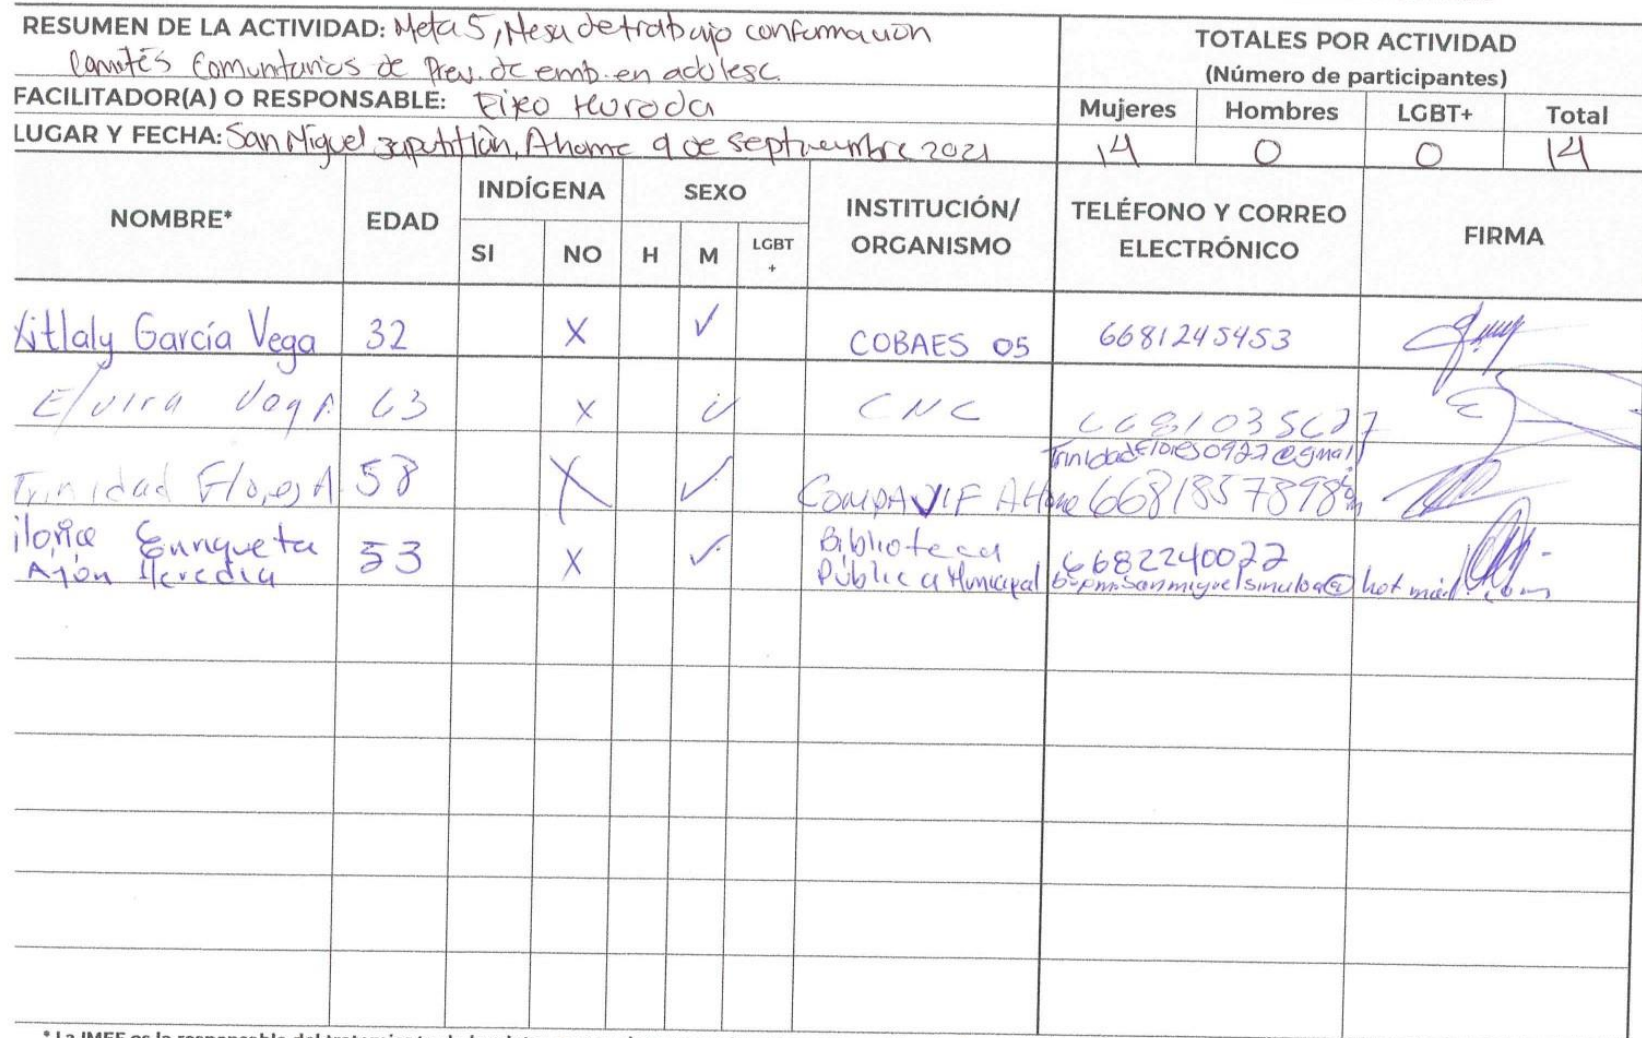 RESUMEN DE LA ACTIVIDAD: Meta 5, Mesa de trabajo conformación
Comités Comunitarios de Prev. de emb. en adolesc.
FACILITADOR(A) O RESPONSABLE: Eiko Kuroda
LUGAR Y FECHA: San Miguel Zapotitlán, Ahome 9 de septiembre 2021
TOTALES POR ACTIVIDAD
(Número de participantes)
Mujeres Hombres LGBT+ Total
14 0 0 14
NOMBRE* EDAD INDÍGENA SEXO INSTITUCIÓN/ ORGANISMO TELÉFONO Y CORREO ELECTRÓNICO FIRMA
SI NO H M LGBT +
Xitlaly García Vega 32 X ✓ COBAES 05 6681245453
Elvira Vega A 63 X ✓ CNC 6681035627
Trinidad Flores A 58 X ✓ COMPAVIF Ahome Trinidadflores0927@gmail.com 6681857898
Enriqueta 53 X ✓ Biblioteca 6682240022
Ajón Heredia Pública Municipal hotmail.com
* La IMEF es la responsable del